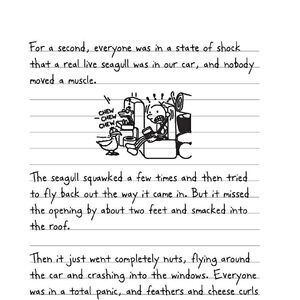 For a second, everyone was in a state of shock
that a real live seagull was in our car, and nobody
moved a muscle.
CHEW
CHEW
CHEW
The seagull squawked a few times and then tried
to fly back out the way it came in. But it missed
the opening by about two feet and smacked into
the roof.
Then it just went completely nuts, flying around
the car and crashing into the windows. Everyone
was in a total panic, and feathers and cheese curls